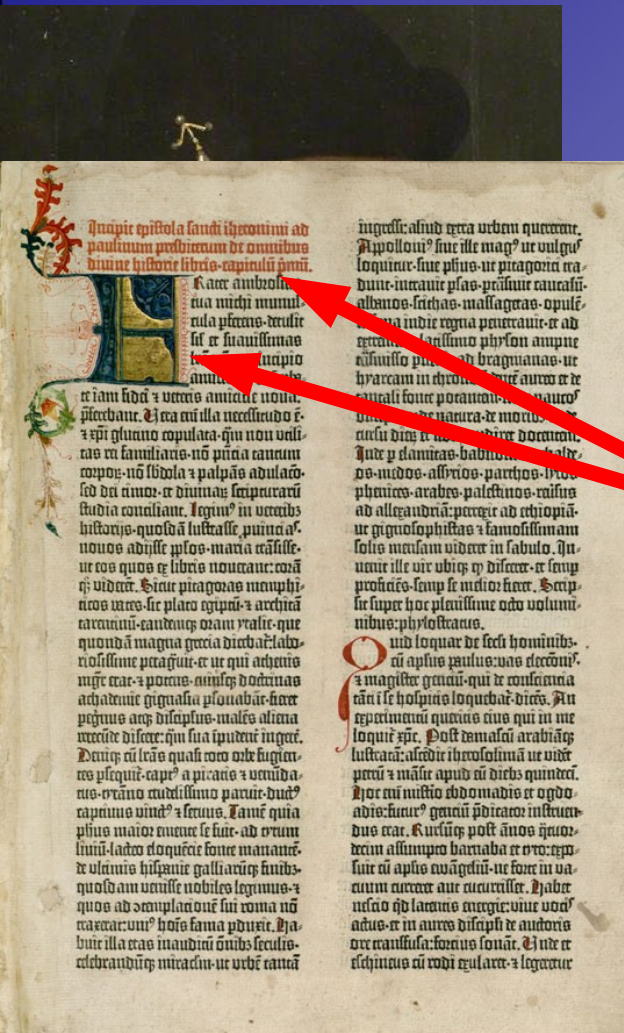 Incipit epistola sancti iheronimi ad
paulinum presbiterum de omnibus
divine historie libris·capitulū pⁱmū.
Frater ambrosius
tua michi munus-
cula pferens·detulit
sil et suauissimas
principio
te iam fidei ⁊ veteris amicicie noua:
pferebant. Vera eni illa necessitudo ē·
⁊ xpi glutino copulata·qm non utili-
tas rei familiaris·nō pntia tantum
corporꝫ·nō sbdola ⁊ palpās adulacō·
sed dei timor·et diuinaꝝ scripturarū
studia conciliant. Legimꝰ in veteribꝫ
historijs·quosdā lustrasse puinciaˢ·
nouos adijsse pplos·maria trāsisse·
ut eos quos ex libris nouerant:corā
qꝫ viderēt. Sicut pitagoras memphi-
ticos vates·sic plato egiptū·⁊ architā
tarentinū·eandemqꝫ oram ytalie·que
quondā magna grecia dicebaᵗ:labo-
riosissime pagͬuit·et ut qui athenis
mgͬr erat·⁊ potens·cuiusqꝫ doctrinas
achademie gignasia psonabāt·fieret
pegͬnus atqꝫ discipulus·malēs aliena
verecūde discere:qͣm sua īpudent ingerē.
Deniqꝫ cū lrās quasi toto orbe fugien-
tes psequiᵗ·captꝰ a piratis ⁊ venūda-
tus·tyrāno crudelissimo paruit·ductꝰ
captiuus vinctꝰ ⁊ seruus. Tamē quia
phus maior emente se fuit·ad tytum
liuiū·lacteo eloquētie fonte manantē·
de ultimis hispanie galliarūqꝫ finibꝫ·
quosdam venisse nobiles legimus·⁊
quos ad ꝯtemplationē sui roma nō
traxerat:uniꝰ hoīs fama pduxit. Ha-
buit illa etas inauditū ōnibꝫ seculis·
celebrandūqꝫ miraclm·ut urbē tantā
ingressi:aliud extra urbem quererent.
Appolloniꝰ siue ille magꝰ ut vulguˢ
loquitur·siue phus·ut pitagorici tra-
dunt·intrauit psas·ptͣnsiuit caucasū·
albanos·scithas·massagetas·opulē-
tissima indie regna penetrauit·et ad
extremum latissimo physon ampne
tͣnsmisso puenit ad bragmanas·ut
hyarcam in throno sedētē aureo et de
tantali fonte potantem·inter paucoˢ
discipulos·de natura·de moribꝫ·ac de
cursu dieꝝ et siderū audiret docentem.
Inde p elamitas·babilonios·chalde-
os·medos·assyrios·parthos·syros
phenices·arabes·palestinos·reūsus
ad allexandriā:perrexit ad ethiopiā·
ut gignosophistas ⁊ famosissimam
solis mensam videret in sabulo. In-
uenit ille vir ubiqꝫ qd disceret·et semp
proficiēs·semp se melior fieret. Scrip-
sit super hoc plenissime octo volumi-
nibus:phylostratus.
Quid loquar de secli hominibꝫ·
cū apsus paulus:vas eleccōnis·
⁊ magister gentiū·qui de consciencia
tāti ī se hospitis loquebaᵗ·dicēs. An
experimentū queritis eius qui in me
loquiᵗ xpc. Post damascū arabiāqꝫ
lustratā:ascēdit iherosolimā ut vidēt
petrū ⁊ māsit apud eū diebꝫ quindeci.
Hoc eni mistio ebdomadis et ogdo-
adis:futurꝰ gentiū pdicator instruen-
dus erat. Rursūqꝫ post ānos qtuor-
decim assumpto barnaba et tyto:expo-
suit cū apsis ewāgeliū·ne forte in va-
cuum curreret aut cucurrisset. Habet
nescio qd latentis energie:viue vociˢ
actus·et in aures discipli de auctoris
ore transfusa:forcius sonāt. Unde et
eschineus cū rodi exularet·⁊ legeretur